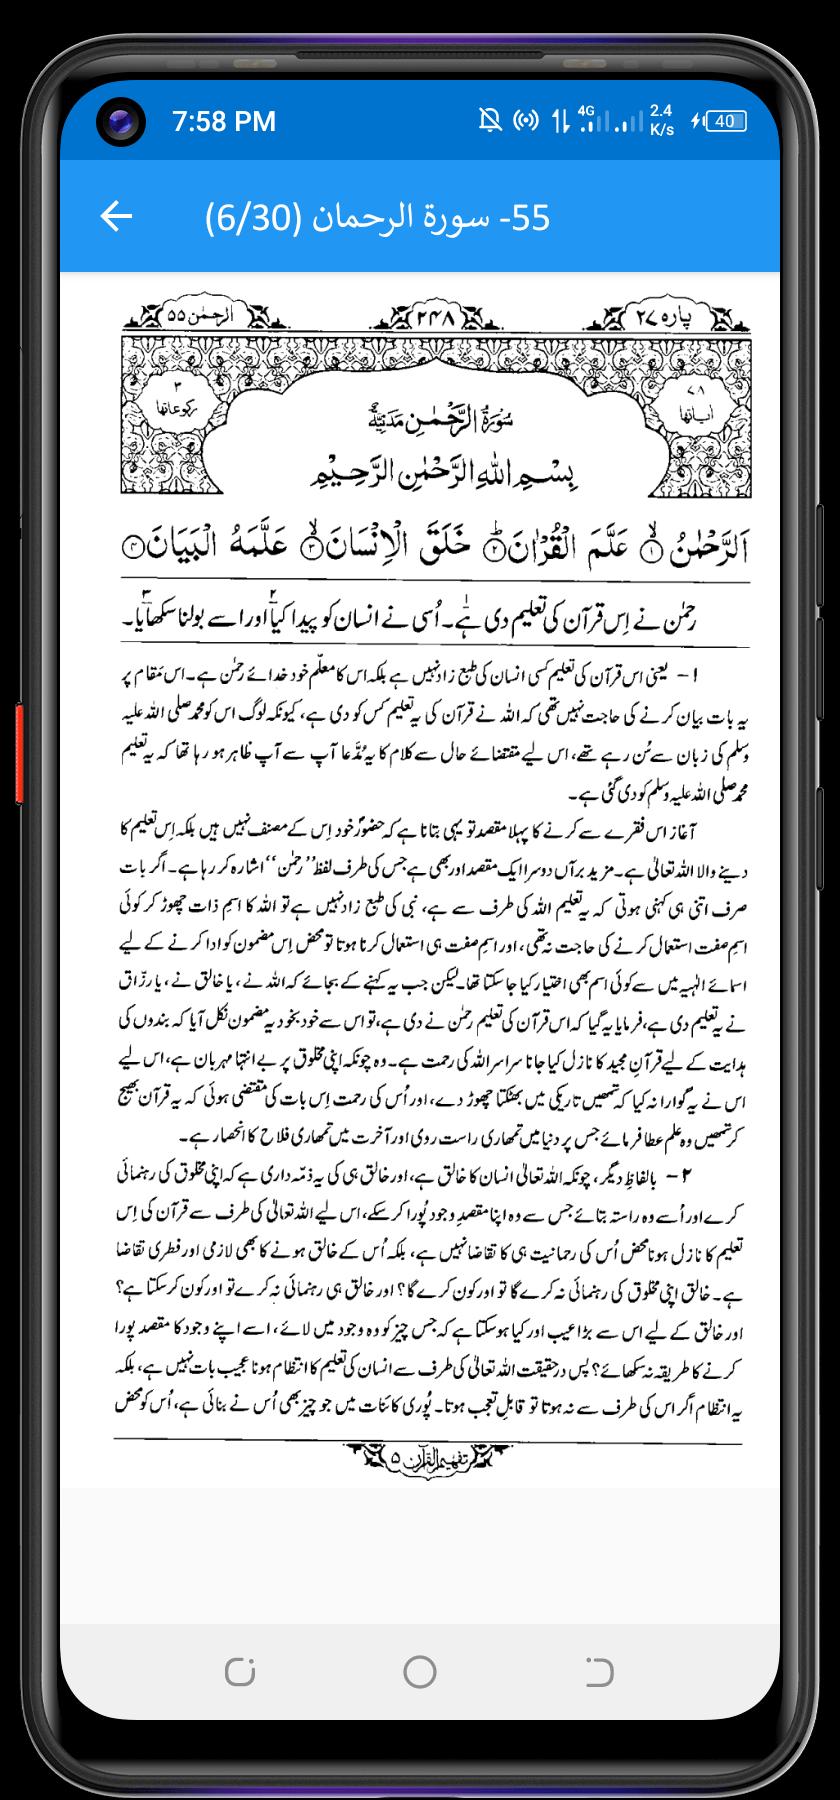 7:58 PM
4G
2.4
K/s
40
55- سورة الرحمان (6/30)
پارہ ۲۷
۲۴۸
الرحمٰن ۵۵
۷۸
اٰیاتھا
۳
رکوعاتھا
سُوْرَۃُ الرَّحْمٰنِ مَدَنِیَّۃٌ
بِسْمِ اللّٰہِ الرَّحْمٰنِ الرَّحِیْمِ
اَلرَّحْمٰنُ ۙ﴿۱﴾ عَلَّمَ الْقُرْاٰنَ ؕ﴿۲﴾ خَلَقَ الْاِنْسَانَ ۙ﴿۳﴾ عَلَّمَہُ الْبَیَانَ ﴿۴﴾
رحمٰن نے اِس قرآن کی تعلیم دی ہے۱۔ اُسی نے انسان کو پیدا کیا۲ اور اسے بولنا سکھایا۳۔
۱ – یعنی اس قرآن کی تعلیم کسی انسان کی طبع زاد نہیں ہے بلکہ اس کا معلّم خود خدائے رحمٰن ہے۔ اس مقام پر
یہ بات بیان کرنے کی حاجت نہیں تھی کہ اللہ نے قرآن کی یہ تعلیم کس کو دی ہے، کیونکہ لوگ اس کو محمد صلی اللہ علیہ
وسلم کی زبان سے سُن رہے تھے، اس لیے مقتضائے حال سے کلام کا یہ مُدَّعا آپ سے آپ ظاہر ہو رہا تھا کہ یہ تعلیم
محمد صلی اللہ علیہ وسلم کو دی گئی ہے۔
آغاز اس فقرے سے کرنے کا پہلا مقصد تو یہی بتانا ہے کہ حضورؐ خود اِس کے مصنف نہیں ہیں بلکہ اِس تعلیم کا
دینے والا اللہ تعالیٰ ہے۔ مزید برآں دوسرا ایک مقصد اور بھی ہے جس کی طرف لفظ ’’رحمٰن‘‘ اشارہ کر رہا ہے۔ اگر بات
صرف اتنی ہی کہنی ہوتی کہ یہ تعلیم اللہ کی طرف سے ہے، نبی کی طبع زاد نہیں ہے تو اللہ کا اسمِ ذات چھوڑ کر کوئی
اسمِ صفت استعمال کرنے کی حاجت نہ تھی، اور اسمِ صفت ہی استعمال کرنا ہوتا تو محض اِس مضمون کو ادا کرنے کے لیے
اسمائے الٰہیہ میں سے کوئی اسم بھی اختیار کیا جا سکتا تھا۔ لیکن جب یہ کہنے کے بجائے کہ اللہ نے، یا خالق نے، یا رزّاق
نے یہ تعلیم دی ہے، فرمایا یہ گیا کہ اس قرآن کی تعلیم رحمٰن نے دی ہے، تو اس سے خود بخود یہ مضمون نکل آیا کہ بندوں کی
ہدایت کے لیے قرآنِ مجید کا نازل کیا جانا سراسر اللہ کی رحمت ہے۔ وہ چونکہ اپنی مخلوق پر بے انتہا مہربان ہے، اس لیے
اس نے یہ گوارا نہ کیا کہ تمھیں تاریکی میں بھٹکتا چھوڑ دے، اور اُس کی رحمت اِس بات کی مقتضی ہوئی کہ یہ قرآن بھیج
کر تمھیں وہ علم عطا فرمائے جس پر دنیا میں تمھاری راست روی اور آخرت میں تمھاری فلاح کا انحصار ہے۔
۲ – بالفاظِ دیگر، چونکہ اللہ تعالیٰ انسان کا خالق ہے، اور خالق ہی کی یہ ذمّہ داری ہے کہ اپنی مخلوق کی رہنمائی
کرے اور اُسے وہ راستہ بتائے جس سے وہ اپنا مقصدِ وجود پُورا کر سکے، اس لیے اللہ تعالیٰ کی طرف سے قرآن کی اِس
تعلیم کا نازل ہونا محض اُس کی رحمانیت ہی کا تقاضا نہیں ہے، بلکہ اُس کے خالق ہونے کا بھی لازمی اور فطری تقاضا
ہے۔ خالق اپنی مخلوق کی رہنمائی نہ کرے گا تو اور کون کرے گا؟ اور خالق ہی رہنمائی نہ کرے تو اور کون کر سکتا ہے؟
اور خالق کے لیے اس سے بڑا عیب اور کیا ہو سکتا ہے کہ جس چیز کو وہ وجود میں لائے، اسے اپنے وجود کا مقصد پورا
کرنے کا طریقہ نہ سکھائے؟ پس درحقیقت اللہ تعالیٰ کی طرف سے انسان کی تعلیم کا انتظام ہونا عجیب بات نہیں ہے، بلکہ
یہ انتظام اگر اس کی طرف سے نہ ہوتا تو قابلِ تعجب ہوتا۔ پُوری کائنات میں جو چیز بھی اُس نے بنائی ہے، اُس کو محض
تفہیم القرآن ۵